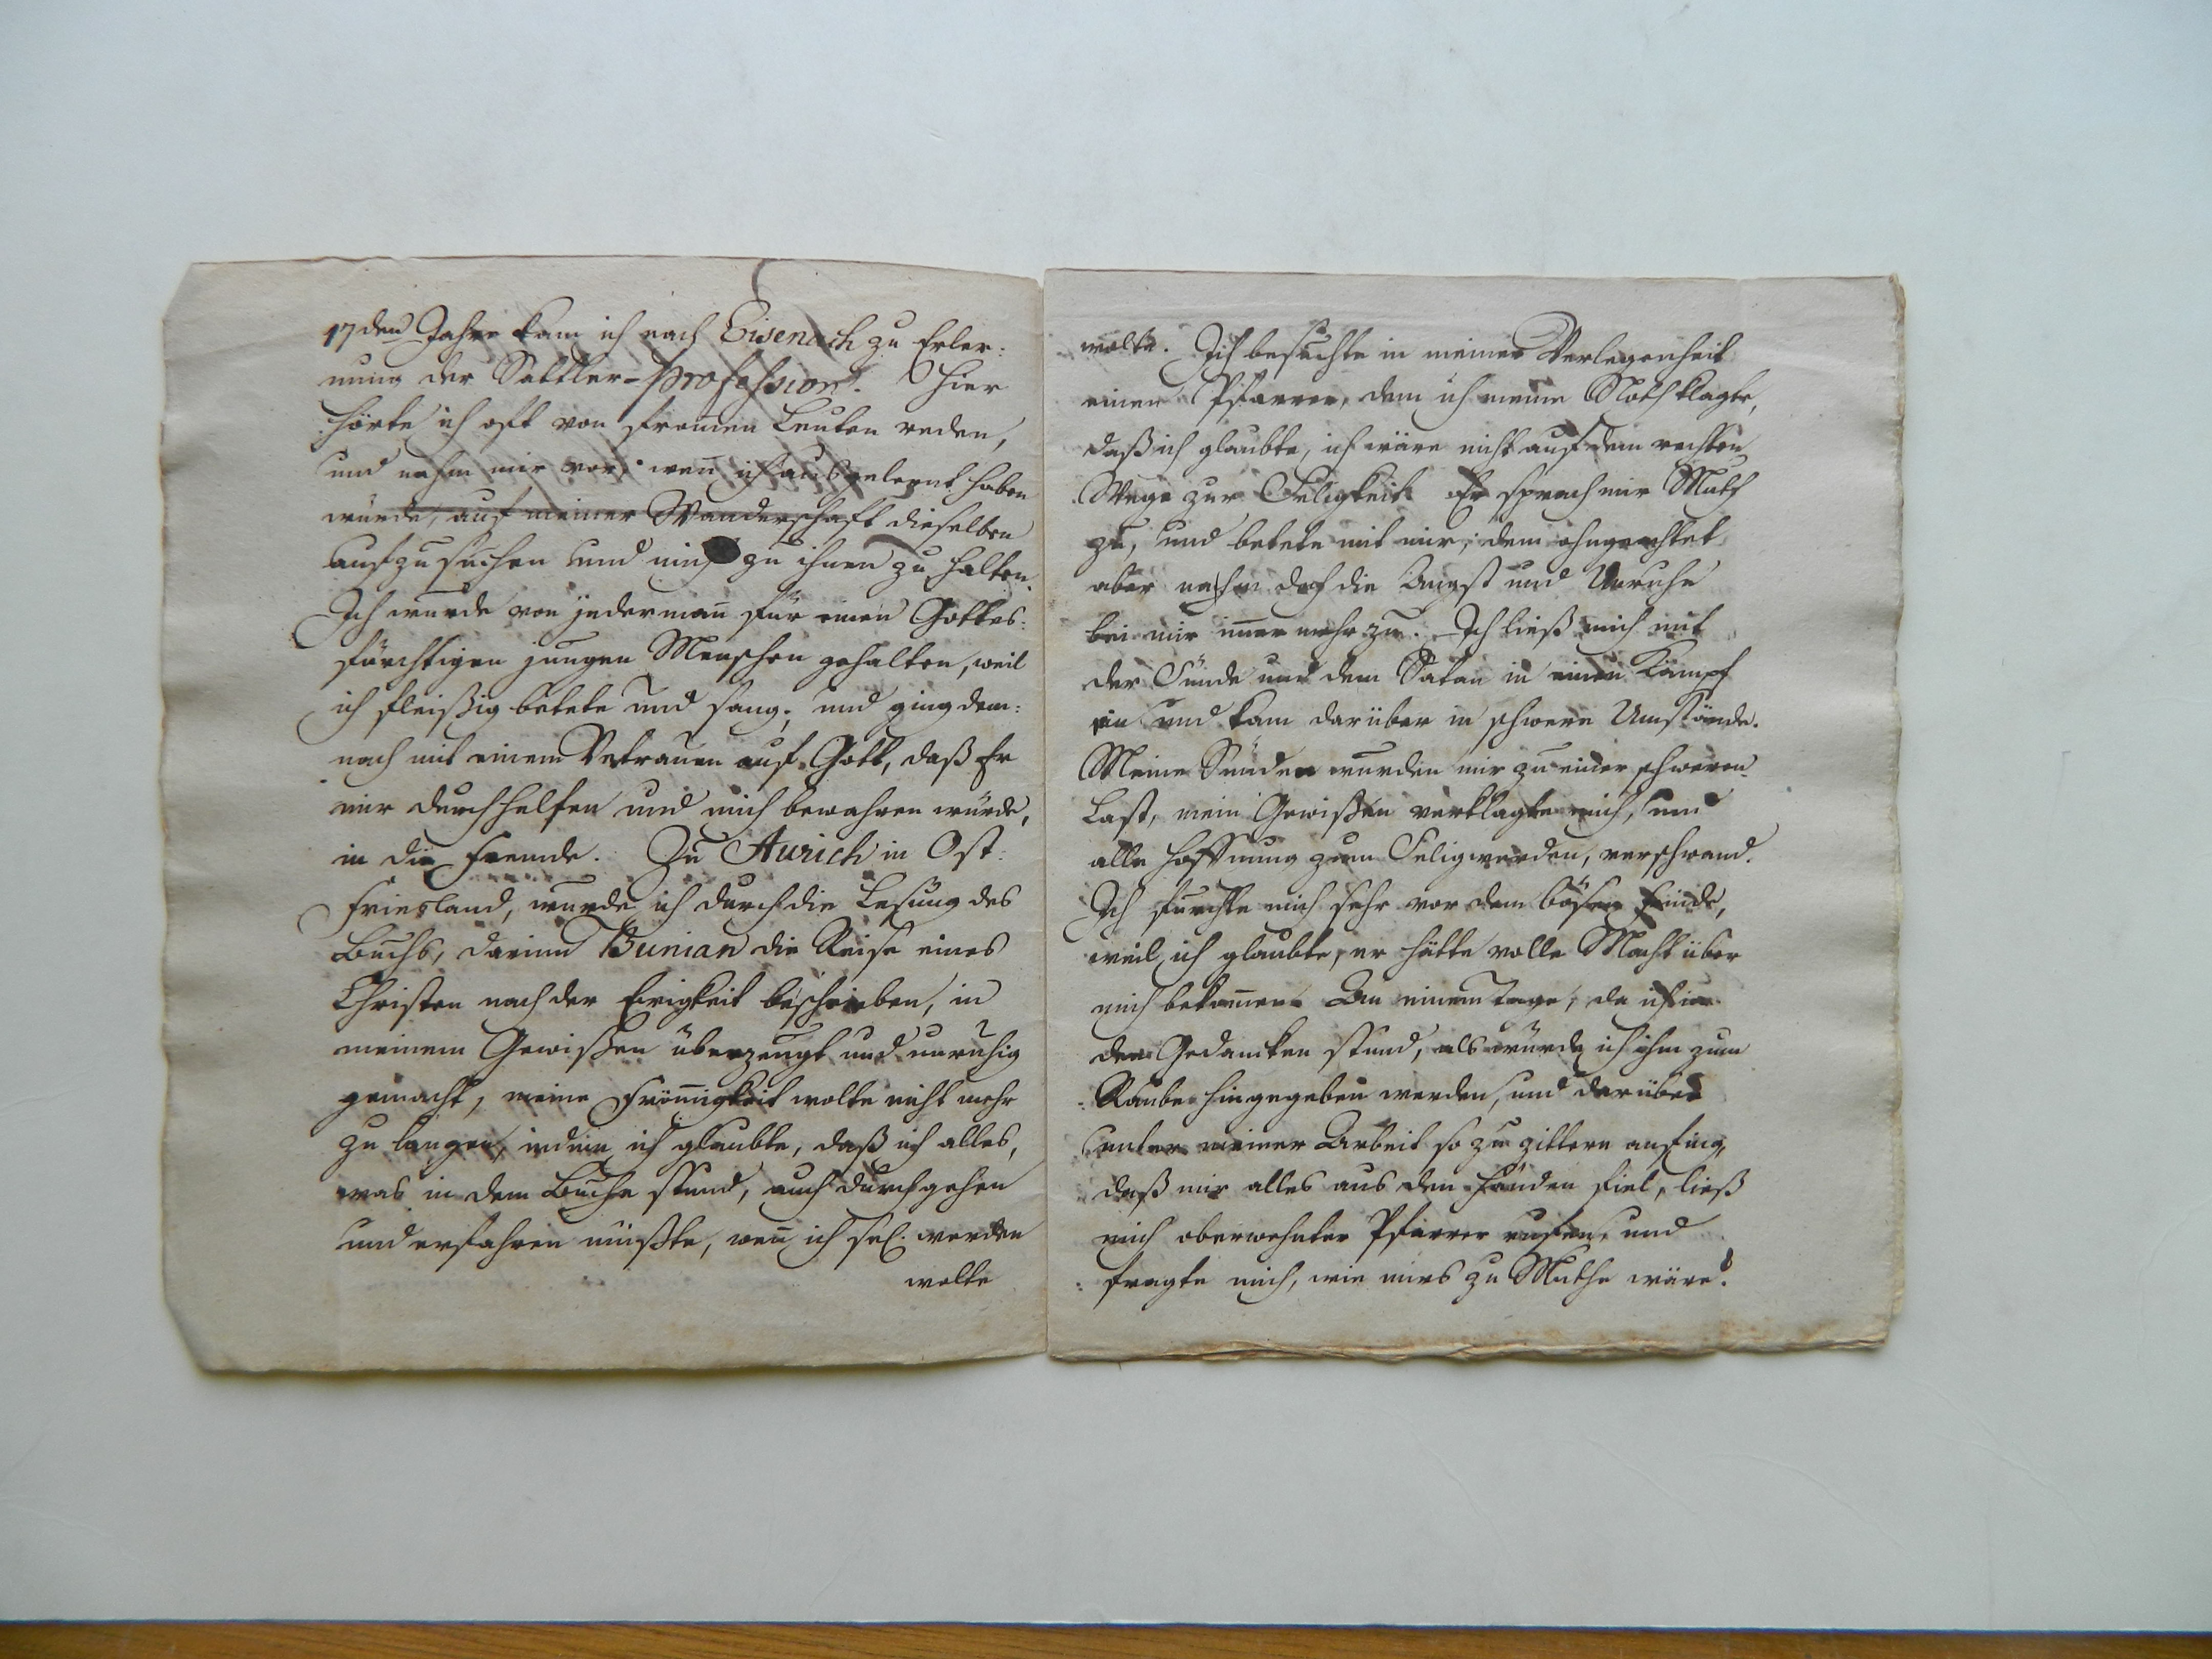 17den Jahre kam ich nach Eisenach zu Erler:
nung der Sattler-Profession. Hier
hörte ich oft von from̄en Leuten reden,
und nahm mir vor, wen̄ ich ausgelernt haben
würde, auf meiner Wanderschaft dieselben
aufzusuchen und mich zu ihnen zu halten.
Ich wurde von jederman̄ für einen Gottes:
fürchtigen jungen Menschen gehalten, weil
ich fleißig betete und sang; und ging dem:
nach mit einem Vertrauen auf Gott, daß Er
mir durchhelfen und mich bewahren würde,
in die Fremde. Zu Aurich in Ost:
Friesland, wurde ich durch die Lesung des
Buchs, darinn Bunian die Reise eines
Christen nach der Ewigkeit beschrieben, in
meinem Gewißen überzeugt und unruhig
gemacht, meine From̄igkeit wolte nicht mehr
zu langen, indem ich glaubte, daß ich alles,
was in dem Buche stund, auch durchgehen
und erfahren müßte, wen̄ ich sel. werden
wolte
wolte. Ich besuchte in meiner Verlegenheit
einen Pfarrer, dem ich meine Noth klagte,
daß ich glaubte, ich wäre nicht auf dem rechten
Wege zur Seligkeit. Er sprach mir Muth
zu, und betete mit mir; dem ohngeachtet
aber nahm doch die Angst und Unruhe
bei mir im̄er mehr zu. Ich ließ mich mit
der Sünde und dem Satan in einen Kampf
ein und kam darüber in schwere Umstände.
Meine Sünden wurden mir zu einer schweren
Last, mein Gewißen verklagte mich, und
alle Hoffnung zum Seligwerden, verschwand.
Ich furchte mich sehr vor dem bösen Feinde,
weil ich glaubte, er hätte volle Macht über
mich bekom̄en. An einem Tage, da ich in
den Gedancken stund, als würde ich ihm zum
Raube hingegeben werden, und darüber
unter meiner Arbeit so zu zittern anfing,
daß mir alles aus den Händen fiel, ließ
mich oberwehnter Pfarrer rufen, und
fragte mich, wie mirs zu Muthe wäre?